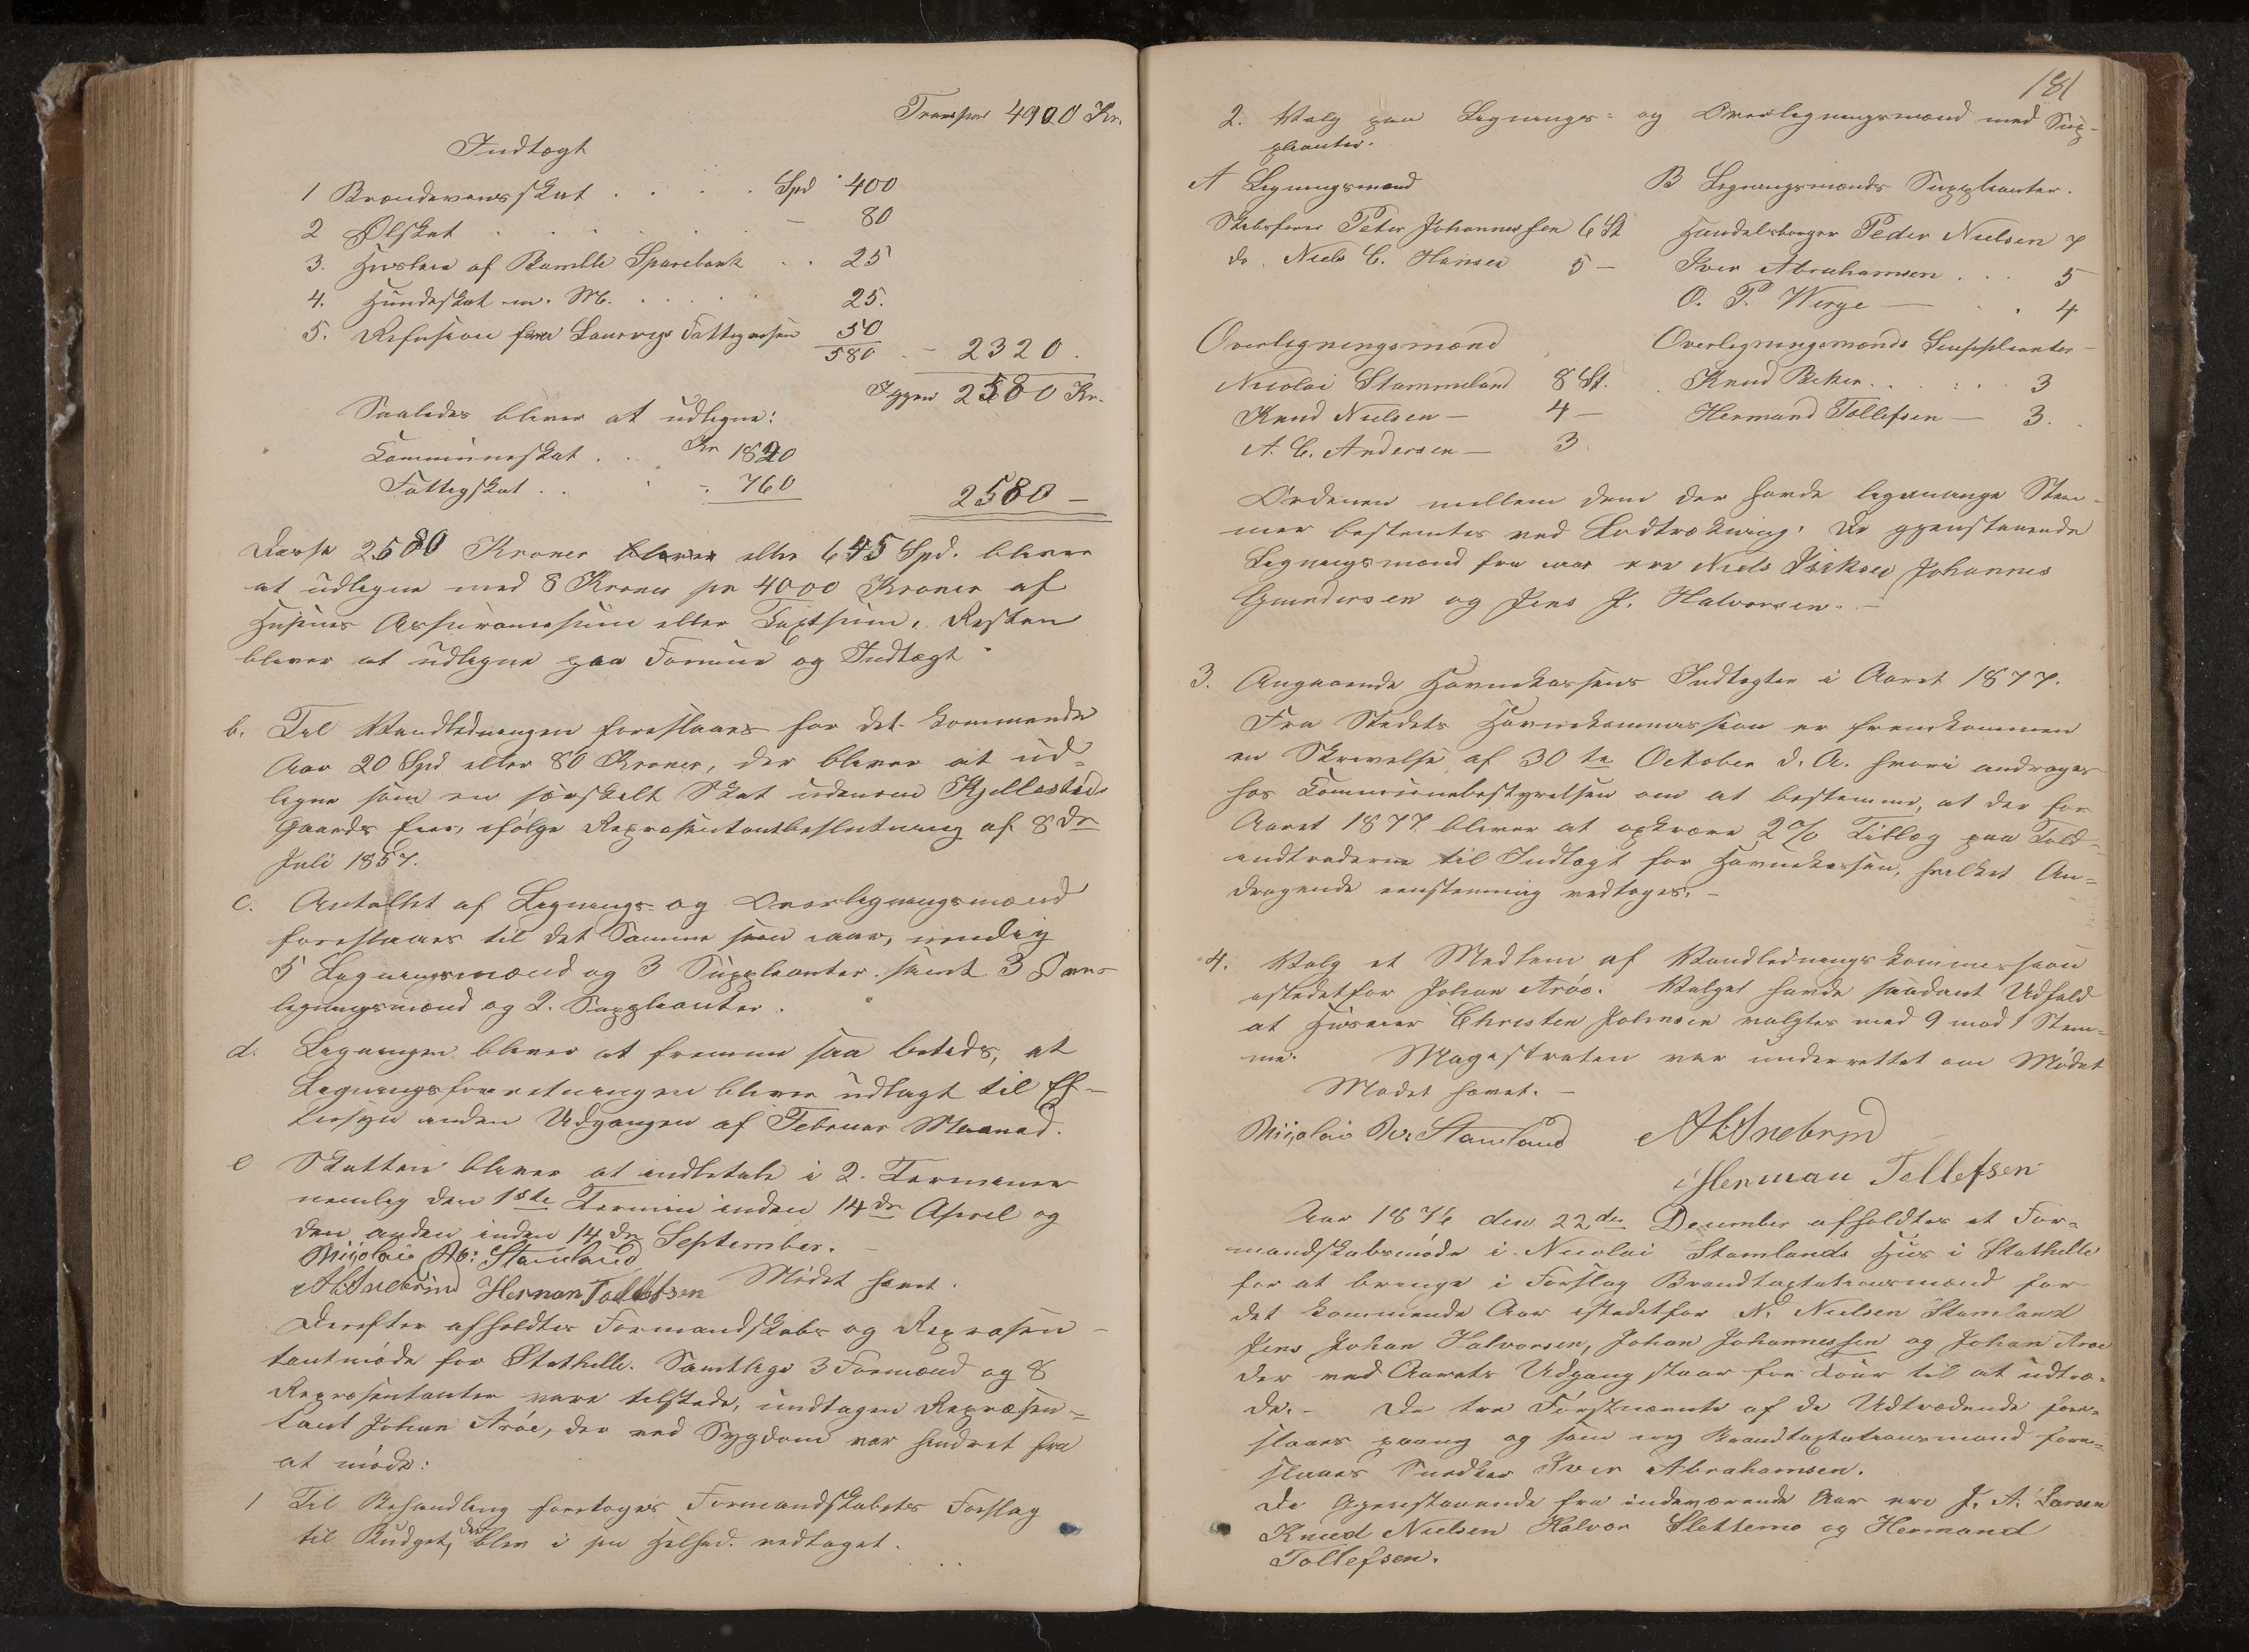 Transport 4900 Kr.
Indtægt
1 Brændevinsskat . . . . Spd 400
2 Ølskat . . . . . – 80
3. Husleie af Bamble Sparebank . . 25
4. Hundeskat m. M. . . . . . 25.
5. Refusion fra Laurvigs Fattigvæsen 50
580 – 2320.
Igjen 2580 Kr.
Saaledes bliver at udligne:
Kommuneskat . . Kr 1820
Fattigskat . . - 760
2580 –
Disse 2580 Kroner bliver eller 645 Spd. bliver
at udligne med 8 Kroner pr 4000 Kroner af
Husenes Assurancesum eller Taxtsum, Resten
bliver at udligne paa Formue og Indtægt
b. Til Vandledningen foreslaaes for det kommende
Aar 20 Spd eller 80 Kroner, der bliver at ud=
ligne som en særskilt Skat udenom Kjellestad
Gaards Eier, ifølge Repræsentantbeslutning af 8de
Juli 1857.
c. Antallet af Lignings- og Overligningsmænd
foreslaaes til det Samme som iaar, nemlig
5 Ligningsmænd og 3 Suppleanter samt 3 Over-
ligningsmænd og 2. Suppleanter.
d. Ligningen bliver at fremme saa betids, at
Ligningsforretningen bliver udlagt til Ef-
tersyn inden Udgangen af Februar Maaned.
e Skatten bliver at indbetale i 2. Terminer
nemlig den 1ste Termin inden 14de April og
den anden inden 14de September. –
Nicolai Stamland
Herman Tollefsen Mødet hævet.
Derefter afholdtes Formandskabs og Repræsen-
tantmøde for Stathelle. Samtlige 3 Formænd og 8
Repræsentanter vare tilstede, undtagen Repræsen=
tant Johan Aröe, der ved Sygdom var hindret fra
at møde:
1 Til Behandling foretoges Formandskabets Forslag
til Budget, der blev i sin Helhed vedtaget.
181
2. Valg paa Lignings= og Overligningsmænd med Sup-
pleanter.
A Ligningsmænd B Ligningsmænds Suppleanter.
Skibsfører Peter Johannessen 6 St Handelsborger Peder Nielsen 7
do. Niels C. Hansen 5 – Iver Abrahamsen . . . 5
O. P. Wirge — . 4
Overligningsmænd Overligningsmænds Suppleanter
Nicolai Stammeland 8 St. Knud Beken . . . . . 3
Knud Nielsen – 4 – Hermand Tollefsen — 3.
A. C. Andersen — 3
Ordenen mellem dem der havde ligemange Stem-
mer bestemtes ved Lodtrækning. De gjenstaaende
Ligningsmænd fra iaar ere Niels Isaksen Johannes
Gundersen og Jens J. Halvorsen. –
3. Angaaende Havnekassens Indtægter i Aaret 1877.
Fra Stedets Havnekommission er fremkommen
en Skrivelse af 30te October d. A. hvori andrages
hos Kommunebestyrelsen om at bestemme, at der for
Aaret 1877 bliver at opkræve 2 % Tillæg paa Told-
indtraderne til Indtægt for Havnekassen, hvilket An=
dragende eenstemmig vedtoges. –
4. Valg et Medlem af Vandledningskommission
istedetfor Johan Aröe. Valget havde saadant Udfald
at Huseier Christen Johnsen valgtes med 9 mod 1 Stem=
me. Magistraten var underrettet om Mødet
Mødet hævet. –
Nicolai Stamland
Herman Tellefsen
Aar 1876 den 22de December afholdtes et For=
mandskabsmøde i Nicolai Stamlands Hus i Stathelle
for at bringe i Forslag Brandtaxtationsmænd for
det kommende Aar istedetfor N. Nielsen Stamland
Jens Johan Halvorsen, Johan Johannessen og Johan Aroe
der ved Aarets Udgang staar for Tour til at udtræ=
de. – De tre Førstnævnte af de Udtrædende fore=
slaaes paany og som ny Brandtaxtationsmand fore=
slaaes Snedker Iver Abrahamsen.
De Gjenstaaende fra indeværende Aar ere J. A. Larsen
Knud Nielsen Halvor Slettemo og Hermand
Tollefsen.